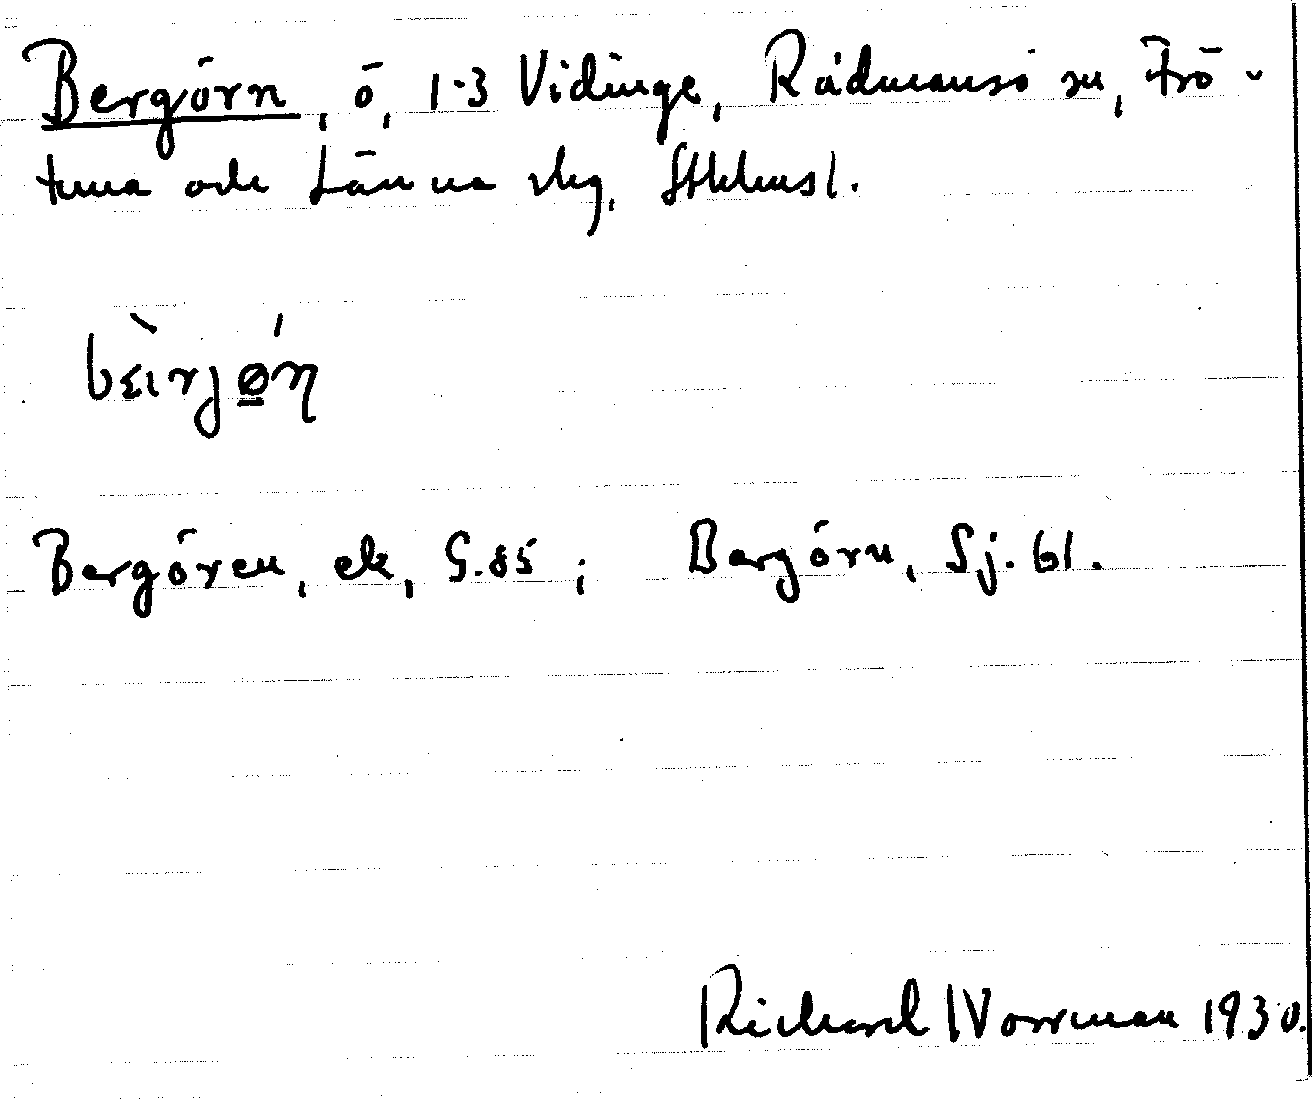 Bergörn, ö, 1-3 Vidinge, Rådmansö sn, Frö-
tuna och Länna skg, Sthlmsl.
Bergören, ek, G.85; Bergörn, Sj. 61.
Richard Norrman 1930.